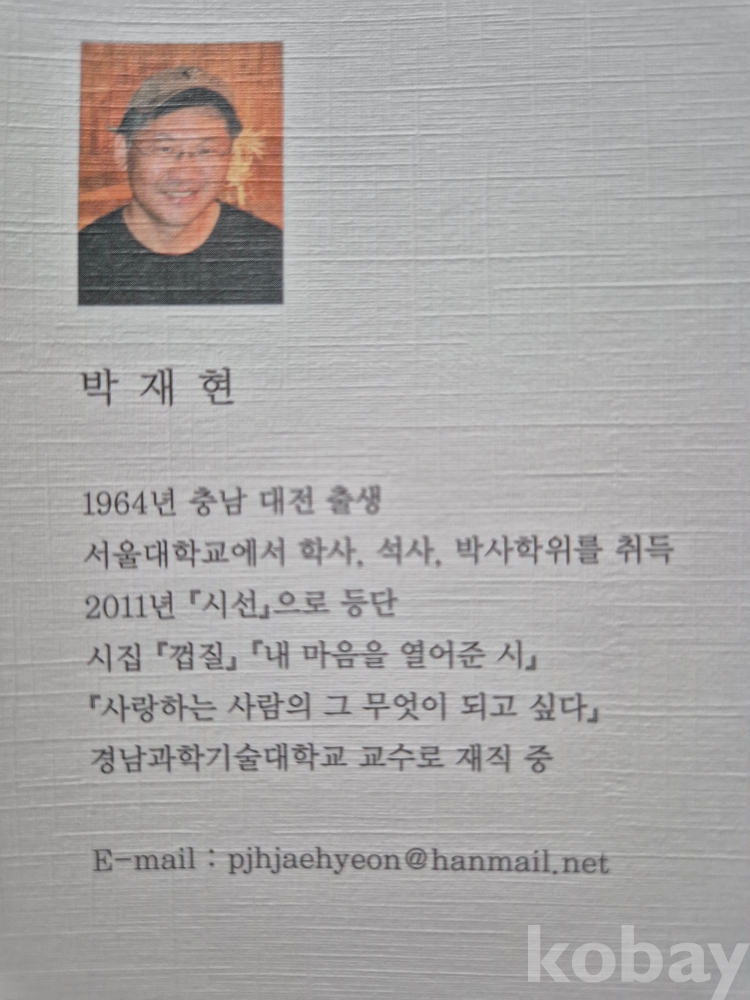 박 재 현
1964년 충남 대전 출생
서울대학교에서 학사, 석사, 박사학위를 취득
2011년 『시선』으로 등단
시집 『껍질』 『내 마음을 열어준 시』
『사랑하는 사람의 그 무엇이 되고 싶다』
경남과학기술대학교 교수로 재직 중
E-mail : pjhjaehyeon@hanmail.net
kobay